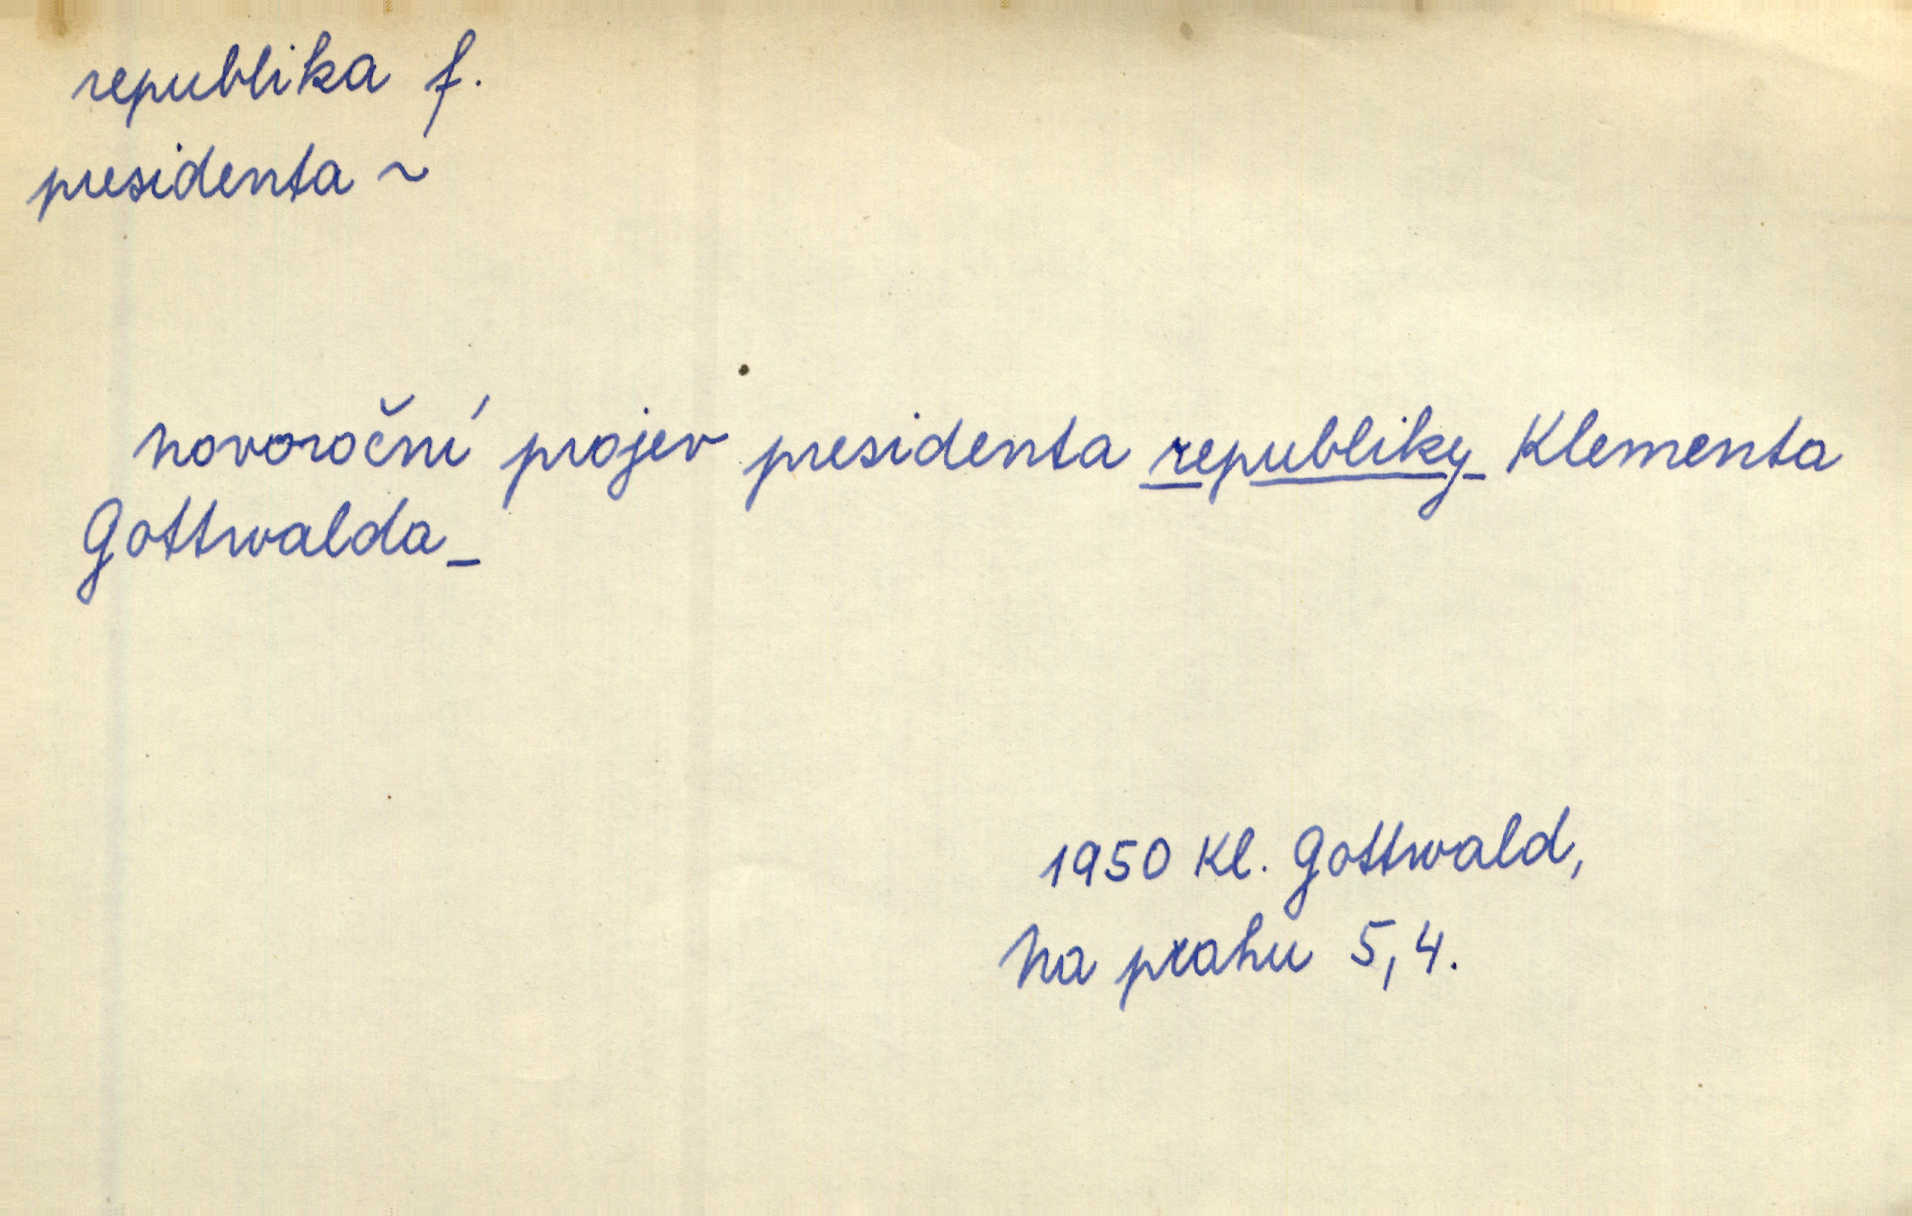 republika f.
presidenta ~
novoroční projev presidenta republiky Klementa
Gottwalda_
1950 Kl. Gottwald,
Na prahu 5,4.